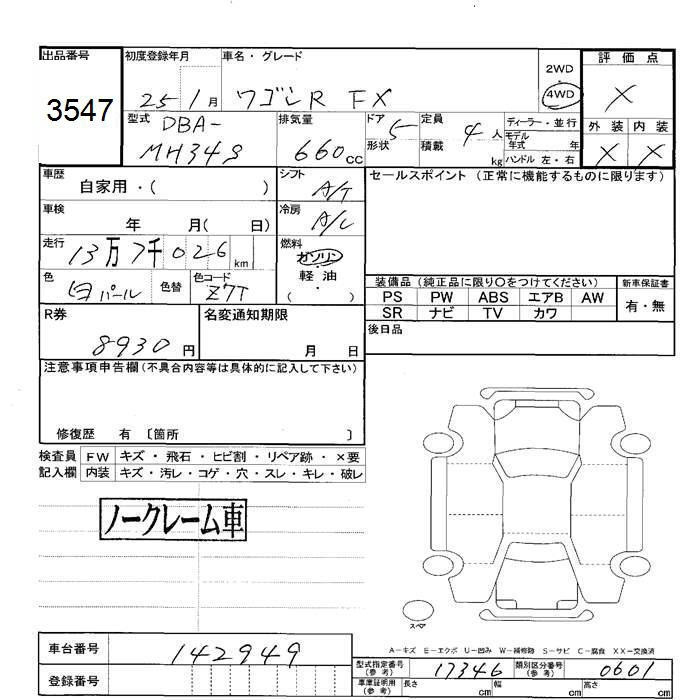 出品番号
3547
初度登録年月
25 1月
車名・グレード
ワゴンR FX
2WD
4WD
評価点
X
外装 内装
X X
型式
DBA-
MH34S
排気量
660cc
ドア 5
形状
定員 4人
積載 kg
ディーラー・並行
モデル年式 年
ハンドル 左・右
車歴
自家用・( )
シフト
A/T
車検
年 月( 日)
冷房
A/C
走行
13万7千026km
燃料
ガソリン
・
軽油
( )
色
白パール
色替
色コード
Z7T
R券
8930円
名変通知期限
月 日
セールスポイント(正常に機能するものに限ります)
装備品(純正品に限り○をつけてください)
PS PW ABS エアB AW
SR ナビ TV カワ
新車保証書
有・無
後日品
注意事項申告欄(不具合内容等は具体的に記入して下さい)
修復歴 有〔箇所 〕
検査員記入欄
FW キズ・飛石・ヒビ割・リペア跡・×要
内装 キズ・汚レ・コゲ・穴・スレ・キレ・破レ
ノークレーム車
スペア
A-キズ E-エクボ U-凹み W-補修跡 S-サビ C-腐食 XX-交換済
車台番号
142949
登録番号
型式指定番号(参考)
17346
類別区分番号(参考)
0601
車庫証明用(参考)
長さ cm 幅 cm 高さ cm